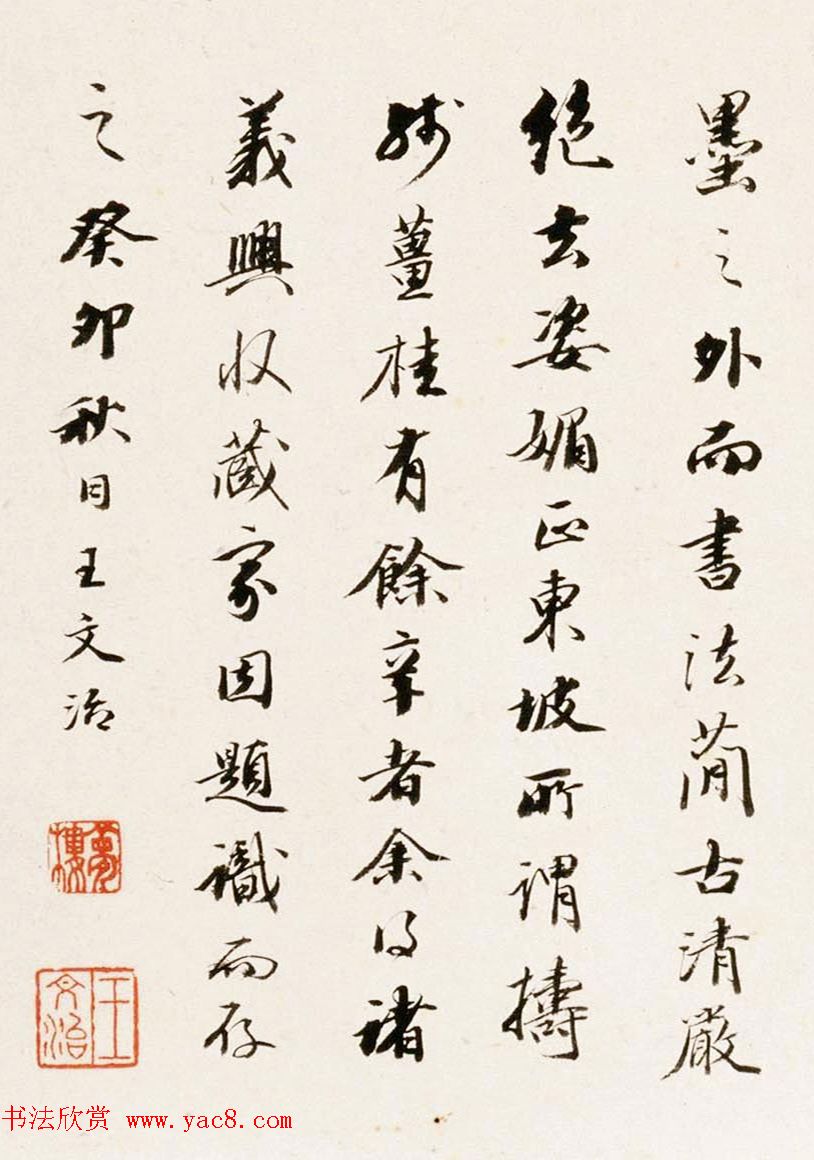 墨之外而書法蕳古清嚴
絕去姿媚正東坡所謂擣
殘薑桂有餘辛者余得諸
義興收藏家因題識而存
之癸卯秋日王文治
夢樓
王文治
书法欣赏 www.yac8.com